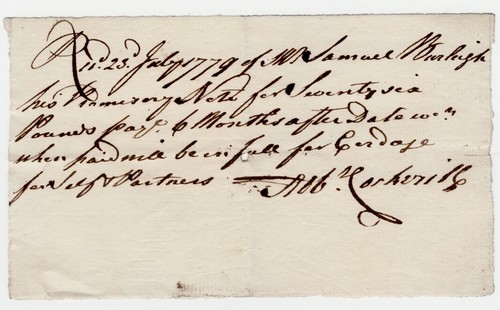 Rec.d 23.d July 1779 of Mr Samuel Burleigh
his Promisory Note for Twenty six
Pounds pay.e 6 Months after Date wc.h
when paid will be in full for Cordage
for Self & Partners Abb.m Cockerill